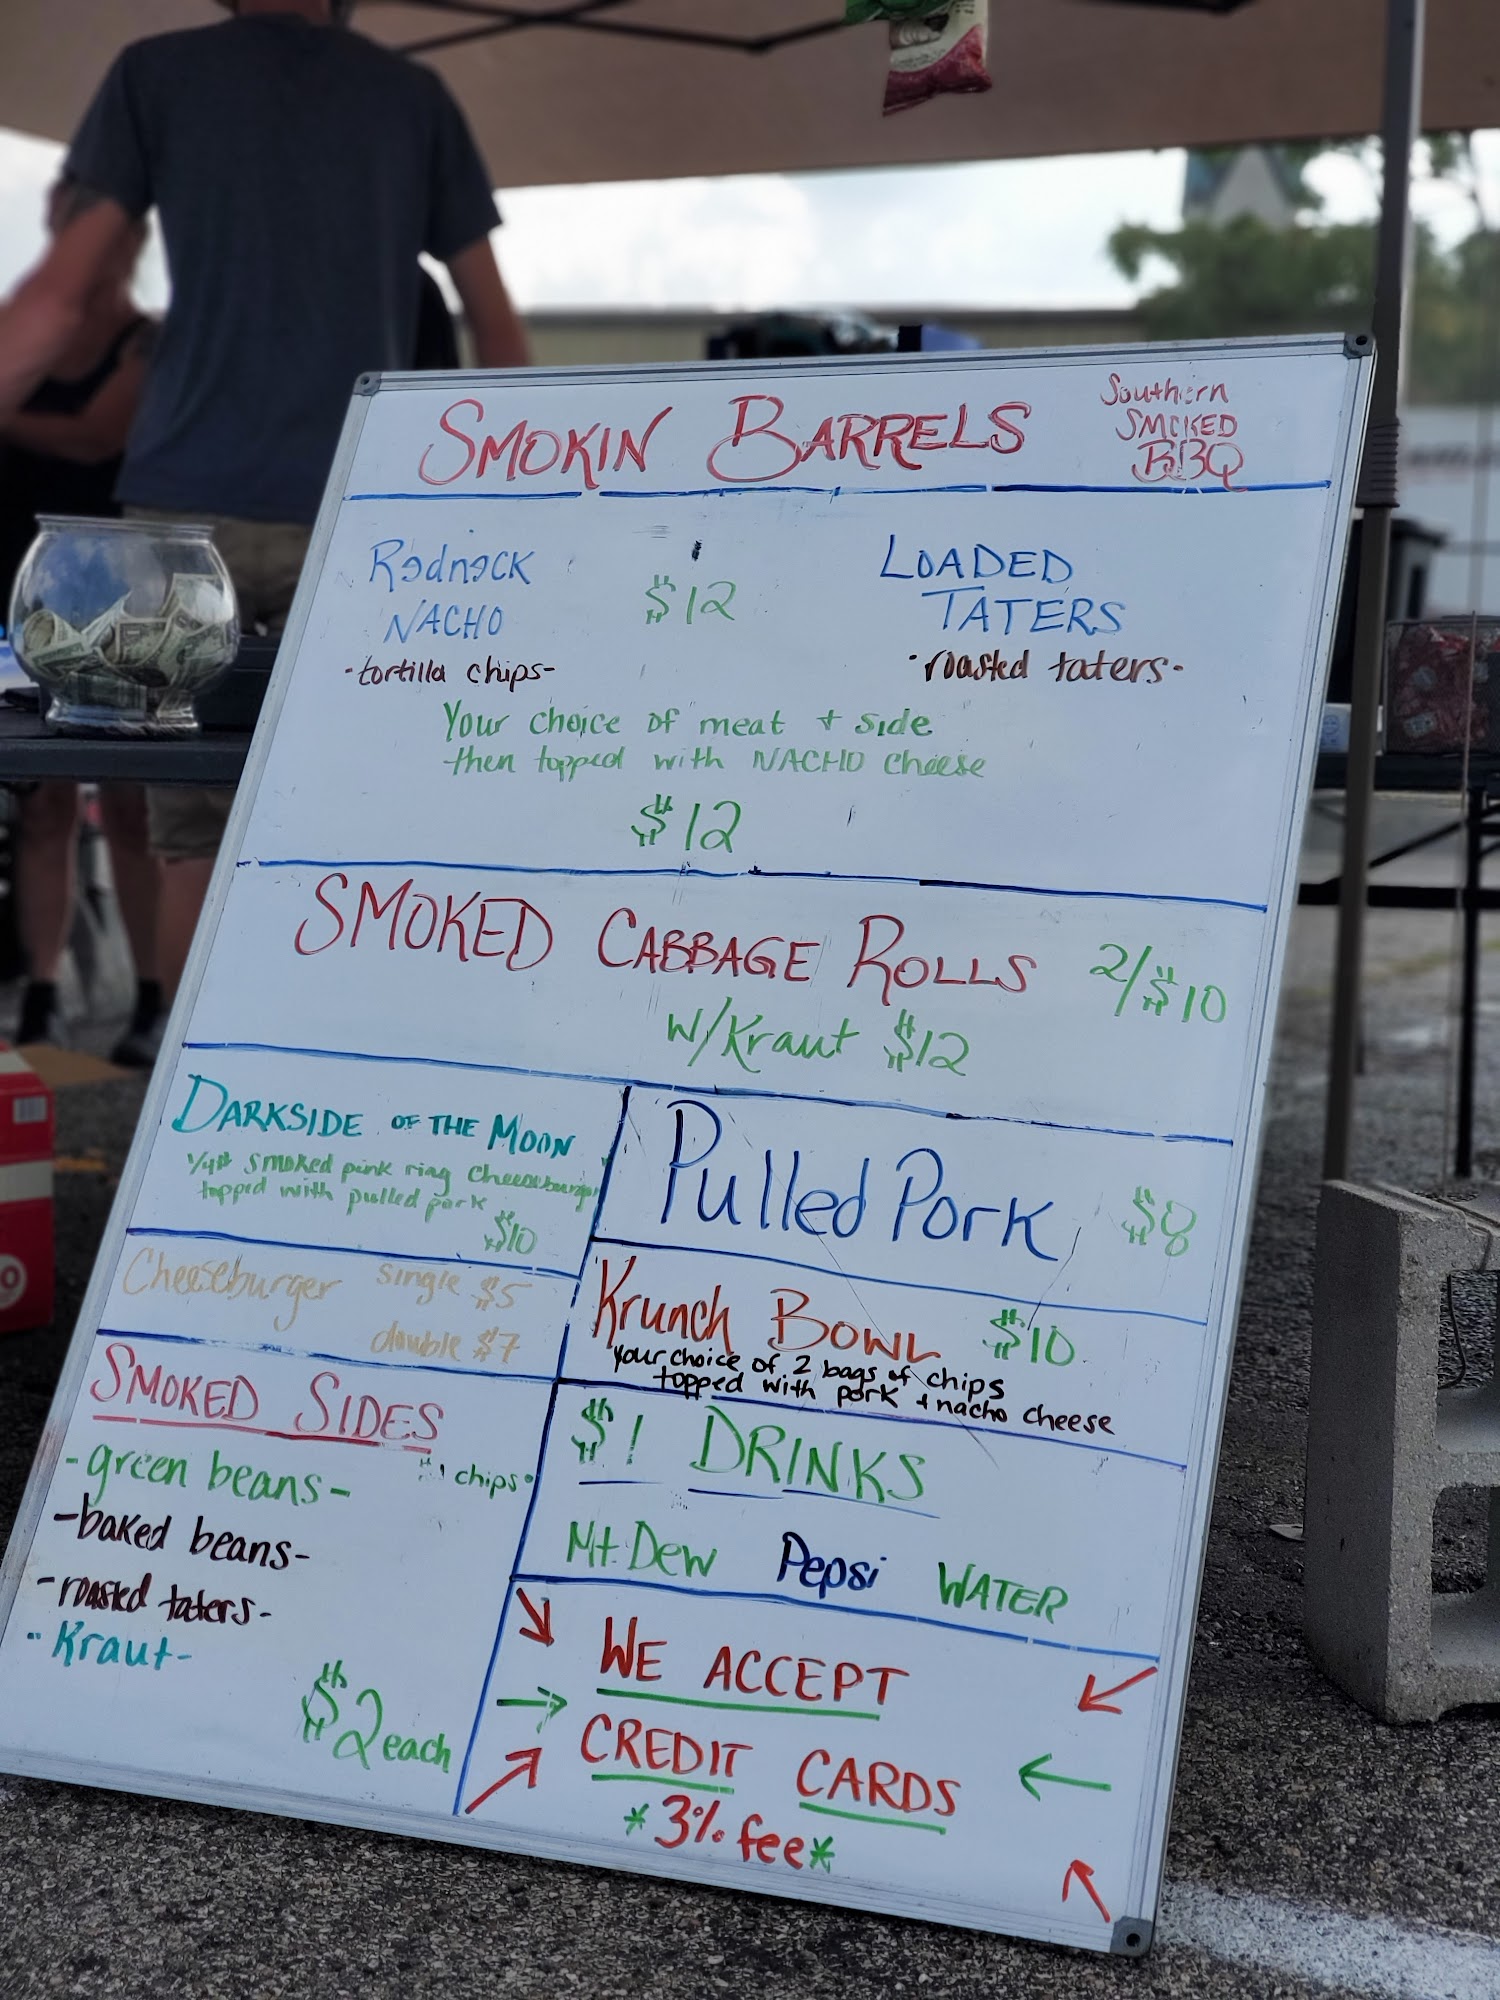 SMOKIN BARRELS
Southern
SMOKED
BBQ
Redneck
NACHO
-tortilla chips-
$12
LOADED
TATERS
·roasted taters·
Your choice of meat + side
then topped with NACHO cheese
$12
SMOKED CABBAGE ROLLS 2/$10
w/Kraut $12
DARKSIDE OF THE MOON
1/4# smoked pink ring cheeseburger
topped with pulled pork
$10
Pulled Pork $8
Cheeseburger single $5
double $7
Krunch BOWL $10
Your choice of 2 bags of chips
topped with pork + nacho cheese
SMOKED SIDES
-green beans-
$1 chips
-baked beans-
-roasted taters-
-Kraut-
$2 each
$1 DRINKS
Mt. Dew Pepsi WATER
WE ACCEPT
CREDIT CARDS
*3% fee*